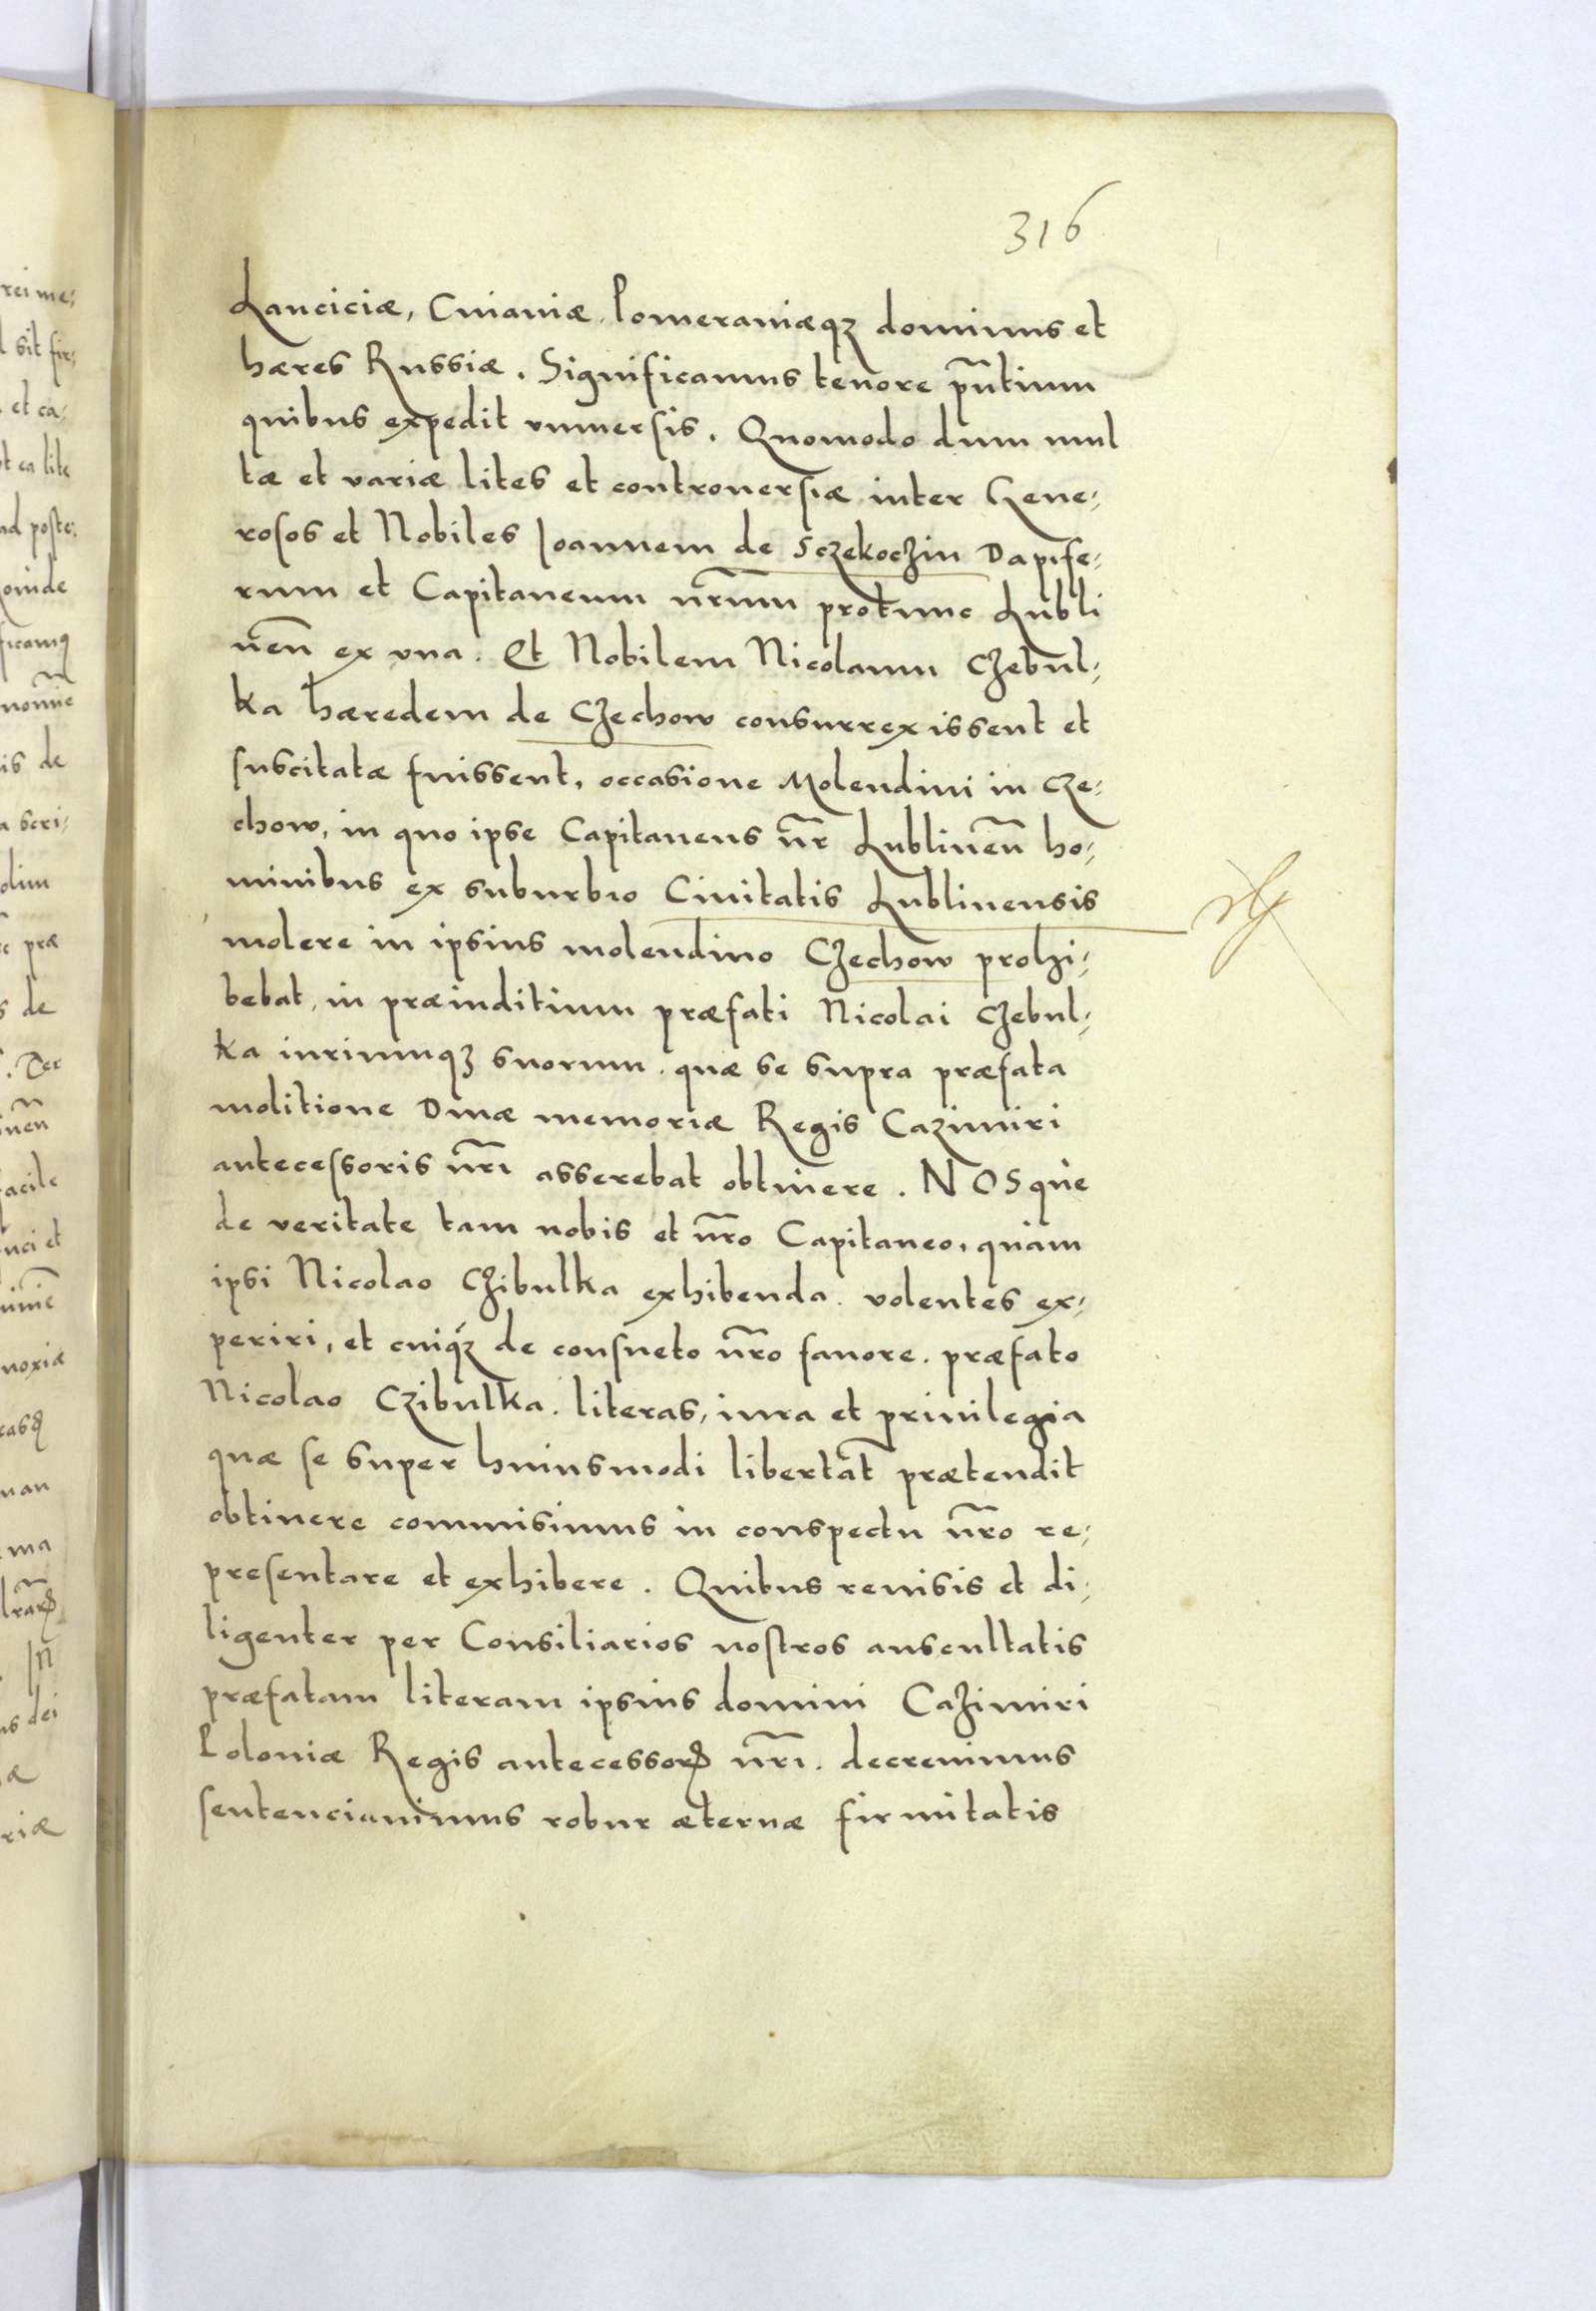 316
Lanciciæ, Cuiauiæ, Pomeraniæqꝫ dominus et
hæres Russiæ. Significamus tenore pn̄tium
quibus expedit vniuersis. Quomodo dum mul
tæ et variæ lites et controuersiæ inter Gene,
rosos et Nobiles Joannem de Sczekoczin Dapife,
rum et Capitaneum nr̄um protunc Lubli
nen̄ ex vna. Et Nobilem Nicolaum Czebul,
ka hæredem de Czechow consurrexissent et
suscitatæ fuissent, occasione Molendini in Cze,
chow, in quo ipse Capitaneus nr̄ Lublinen̄ ho,
minibus ex suburbio Ciuitatis Lublinensis
molere in ipsius molendino Czechow prohi,
bebat, in præiuditium præfati Nicolai Czebul,
ka iuriumqꝫ suorum. quæ se supra præfata
molitione Diuæ memoriæ Regis Cazimiri
antecessoris nr̄i asserebat obtinere. NOS què
de veritate tam nobis et nr̄o Capitaneo, quàm
ipsi Nicolao Czibulka exhibenda. volentes ex,
periri, et cuiqꝫ́ de consueto nr̄o fauore. præfato
Nicolao Czibulka. literas, iura et priuilegia
quæ se super huiusmodi libertat̄ prætendit
obtinere commisimus in conspectu nr̄o re,
presentare et exhibere. Quibus reuisis et di,
ligenter per Consiliarios nostros auscultatis
præfatam literam ipsius domini Cazimiri
Poloniæ Regis antecessorꝭ nr̄i. decreuimus
sentenciauimus robur æternæ firmitatis
rei me,
sit fir,
et ca,
ea lite
ad poste,
oinde
is de
a scri,
olim
præ
de
Ter
nen
acile
nci et
noxiæ
nan
ma
dei
æ
riæ